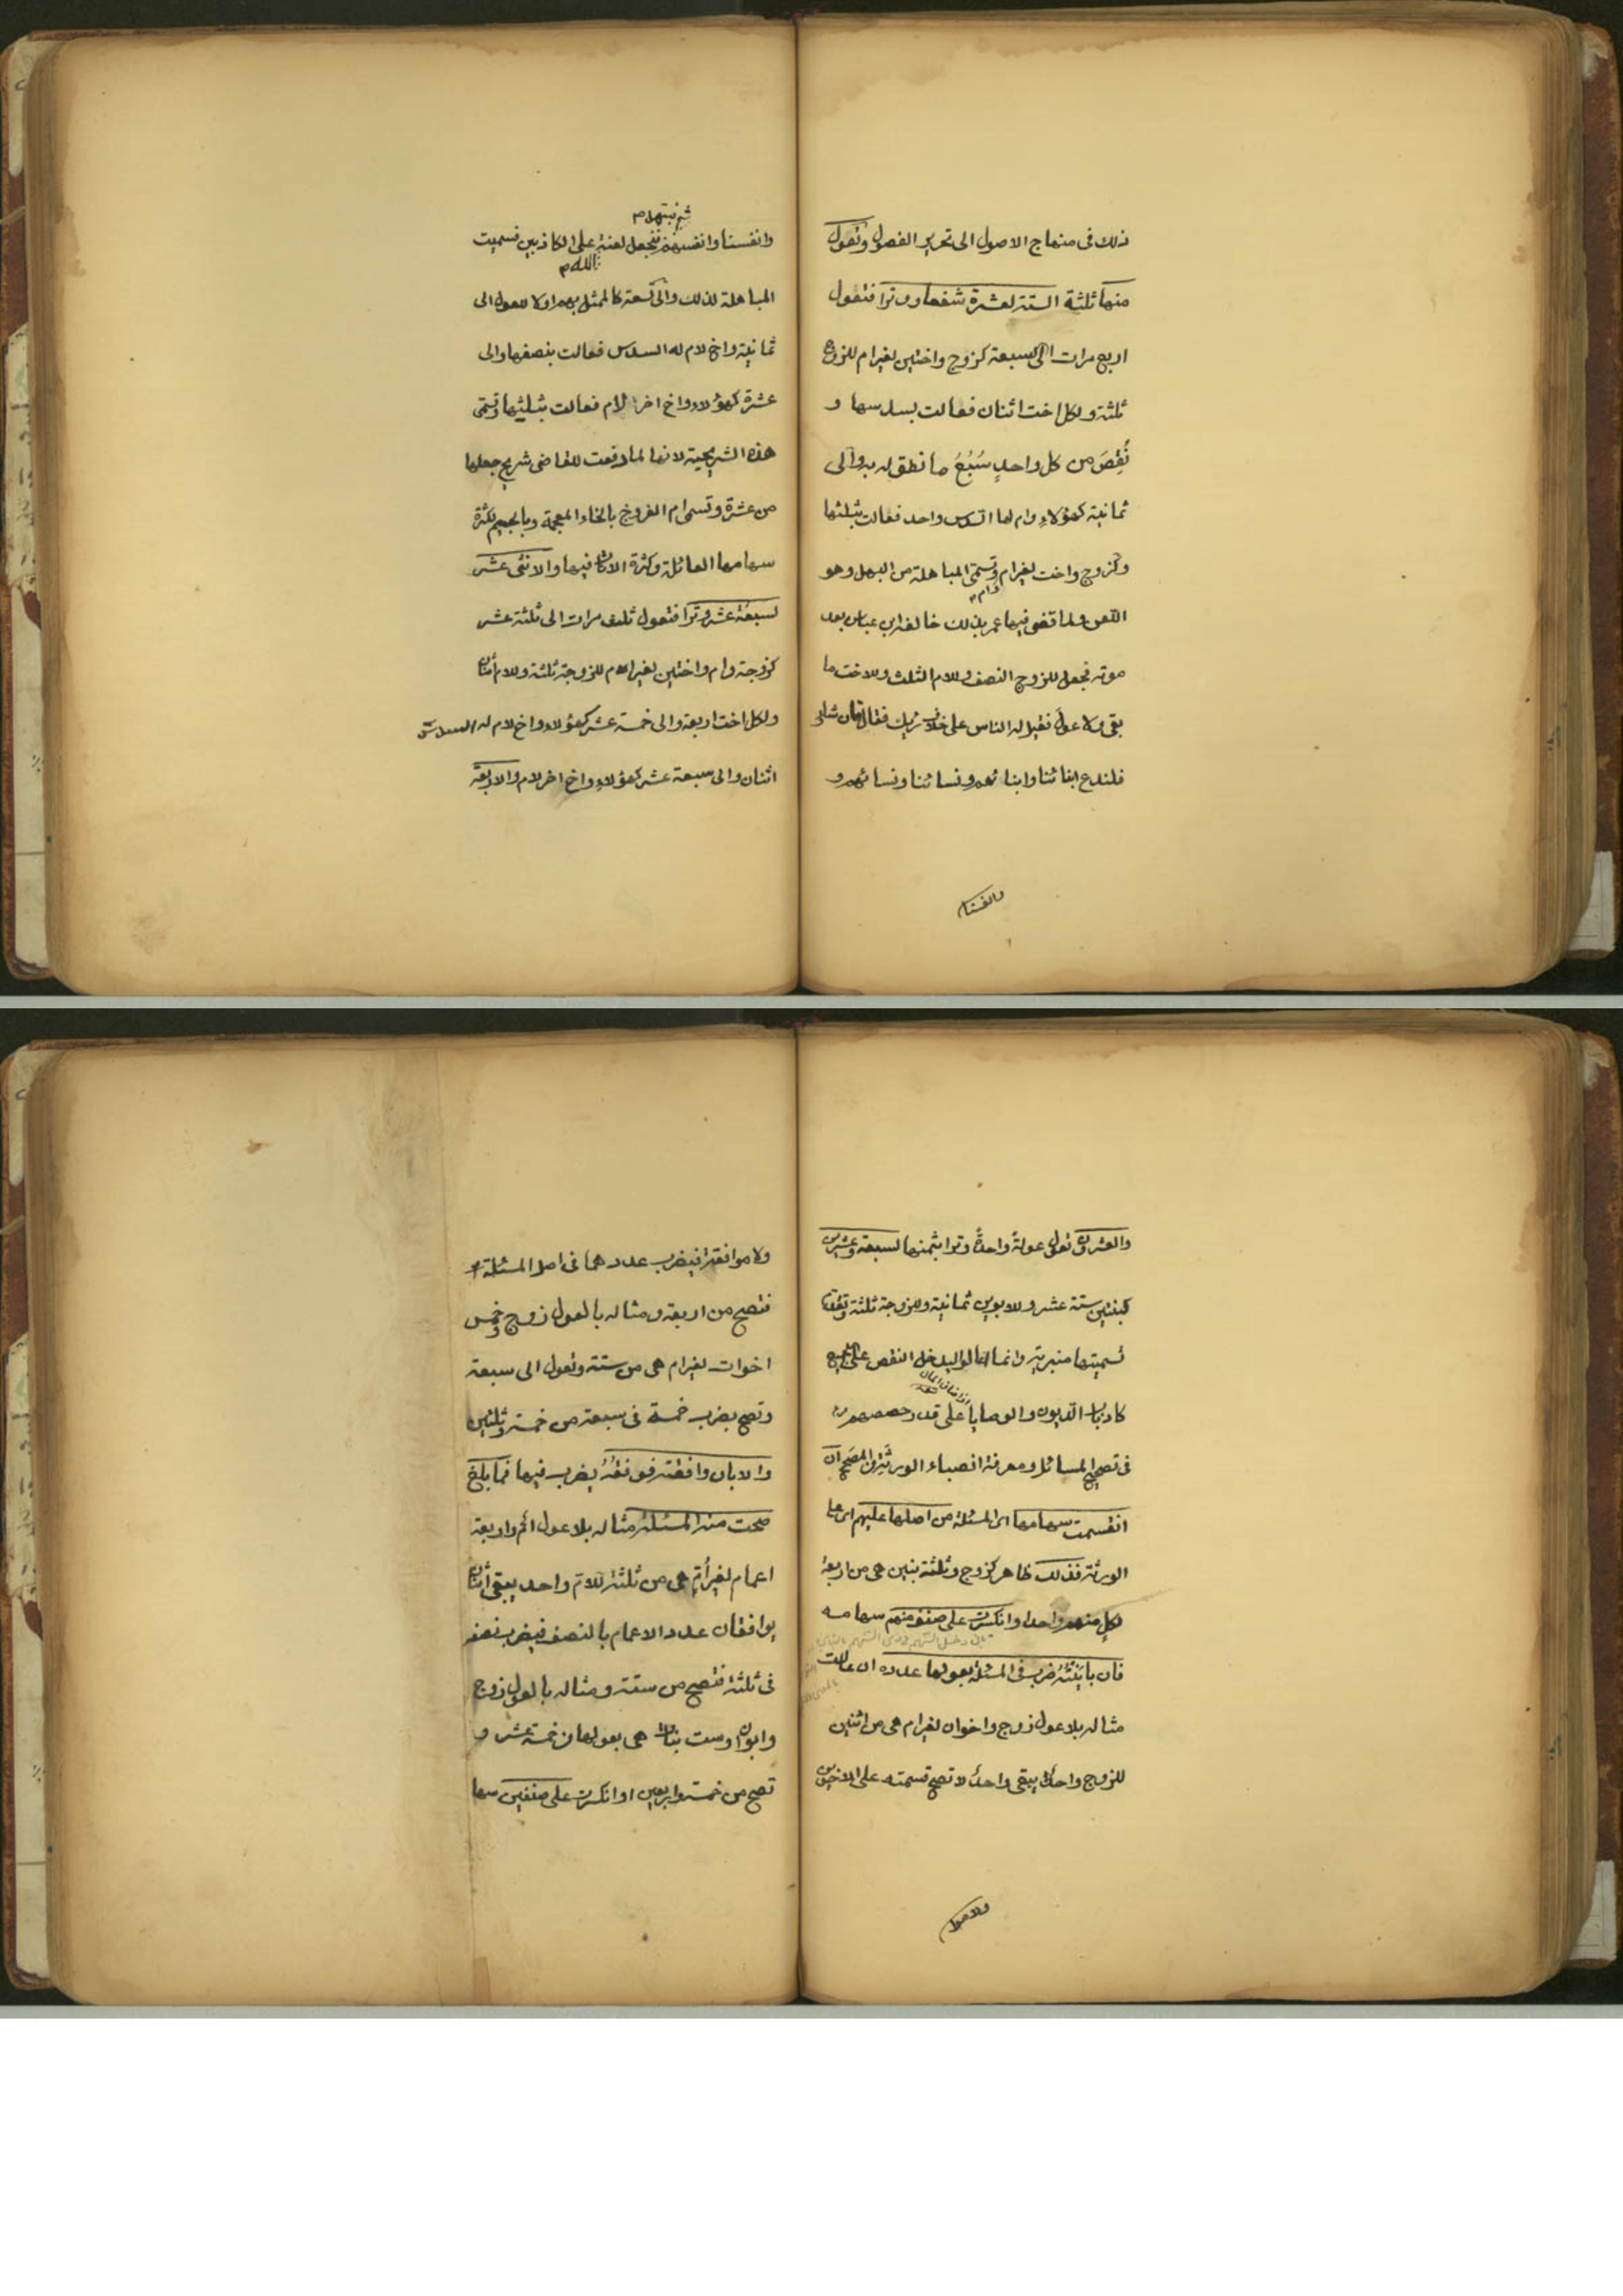 ذلك فى منهاج الاصول الى تحرير الفصول وتعول
منها ثلثة الستة لعشرة شفعا ووترا فتعول
اربع مرات الى سبعة كزوج واختين لغير ام للزوج
ثلثة ولكل اخت اثنان فعالت بسدسها و
نُقِصَ من كل واحدٍ سُبُعُ ما نطق له به والى
ثمانية كهؤلاءِ وام لها السدس واحد فعالت بثلثها
وكزوج واخت لغير ام وتسمى المباهلة من البهل وهو
وام
اللعن ولما قضى فيها عمر بذلك خالفه ابن عباس بعد
موته فجعل للزوج النصف وللام الثلث وللاخت ما
بقى ولا عول فقيل له الناس على خلاف رايك فقال فان شاؤا
فلندع ابنائنا وابنائهم ونسائنا ونسائهم و
وانفسنا
ثم نبتهل
وانفسنا وانفسهم فنجعل لعنة على الكاذبين فسميت
الله
المباهلة لذلك والى تسعة كالممثل بهم اولا للعول الى
ثمانية واخ لام له السدس فعالت بنصفها والى
عشرة كهؤلاء واخ اخر لام فعالت بثلثيها وتسمى
هذه الشريحية لانها لما رفعت للقاضى شريح جعلها
من عشرة وتسمى ام الفروخ بالخاء المعجمة وبالجيم لكثرة
سهامها العائلة وكثرة الاناث فيها والاثنى عشر
لسبعة عشر وترا فتعول ثلاث مرات الى ثلثة عشر
كزوجة وام واختين لغير ام للزوجة ثلثة وللام اثنان
ولكل اخت اربعة والى خمسة عشر كهؤلاء واخ لام له السدس
اثنان والى سبعة عشر كهؤلاءِ واخ اخر لام والاربعة
والعشرون تعول عولةً واحدةً وترا بثمنها لسبعة وعشرين
كبنتين ستة عشر وللابوين ثمانية وللزوجة ثلثة وتقدم
تسميتها منبرية وانما عالوا ليدخل النقص على الجميع
اذا ضاق المال
كارباب الديون والوصايا على قدر حصصهم
فى تصحيح المسائل ومعرفة انصباء الورثة من المصحح ان
انقسمت سهامها اى المسئلة من اصلها عليهم اى على
الورثة فذلك ظاهر كزوج وثلثة بنين هى من اربعة
لكل منهم واحد او انكسرت على صنف منهم سهامه
فان باينَتْهُ ضُرب فى المسئلة بعولها عدده ان عالت
مثاله بلا عول زوج واخوان لغير ام هى من اثنين
للزوج واحد يبقى واحد لا تصح قسمته على الاخوين
ولا موا
ولا موافقة فيضرب عددهما فى اصل المسئلة
فتصح من اربعة ومثاله بالعول زوج وخمس
اخوات لغير ام هى من ستة وتعول الى سبعة
وتصح بضرب خمسة فى سبعة من خمسة وثلثين
والا بان وافقته فوفقُهُ يضرب فيها فما بلغ
صحت منه المسئلة مثاله بلا عول ام واربعة
اعمام لغير اُم هى من ثلثة للام واحد يبقى اثنان
يوافقان عدد الاعمام بالنصف فيضرب نصفه
فى ثلثة فتصح من ستة ومثاله بالعول زوج
وابوان وست بنات هى بعولها من خمسة عشر و
تصح من خمسة واربعين او انكسرت على صنفين سها